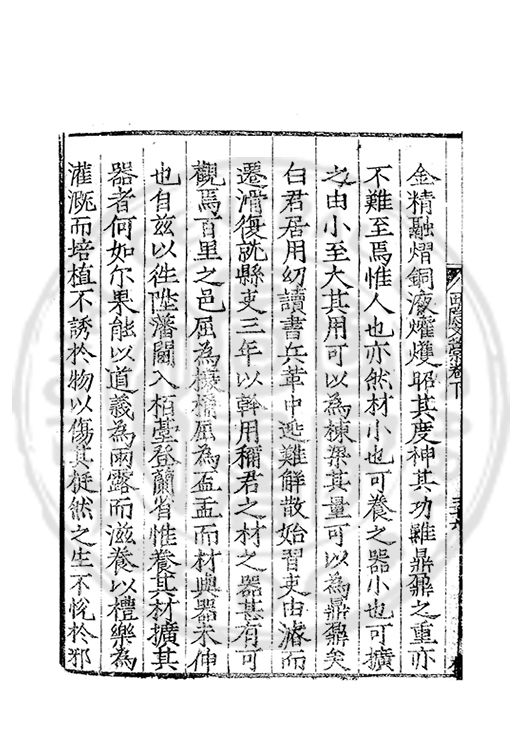 金精融熠銅液爟爕昭其度神其功雖鼎鼐之重亦
不難至焉惟人也亦然材小也可養之器小也可擴
之由小至大其用可以為棟梁其量可以為鼎鼐矣
白君居用幼讀書兵革中迯難解散始習吏由濬而
遷滑復䏻縣吏三年以幹用稱君之材之器甚有可
觀焉百里之邑屈為榱桷屈為盃盂而材與器未伸
也自兹以徃陞藩閫入栢臺登蘭省惟養其材擴其
器者何如尔果能以道義為雨露而滋養以禮樂為
灌溉而培植不誘於物以傷其挺然之生不悅於邪
卷下
三十六